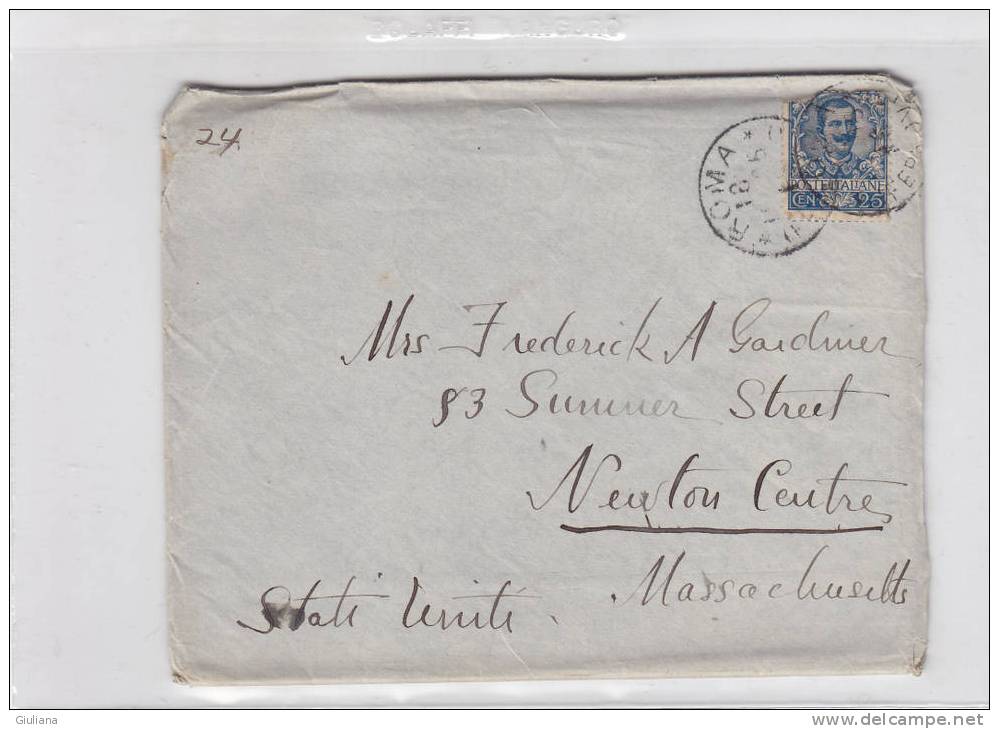 24
ROMA
POSTE ITALIANE
CEN 25
Mrs Frederick A Gardiner
83 Sumner Street
Newton Centre
Massachusetts
Stati Uniti.
Giuliana
delcampe.net